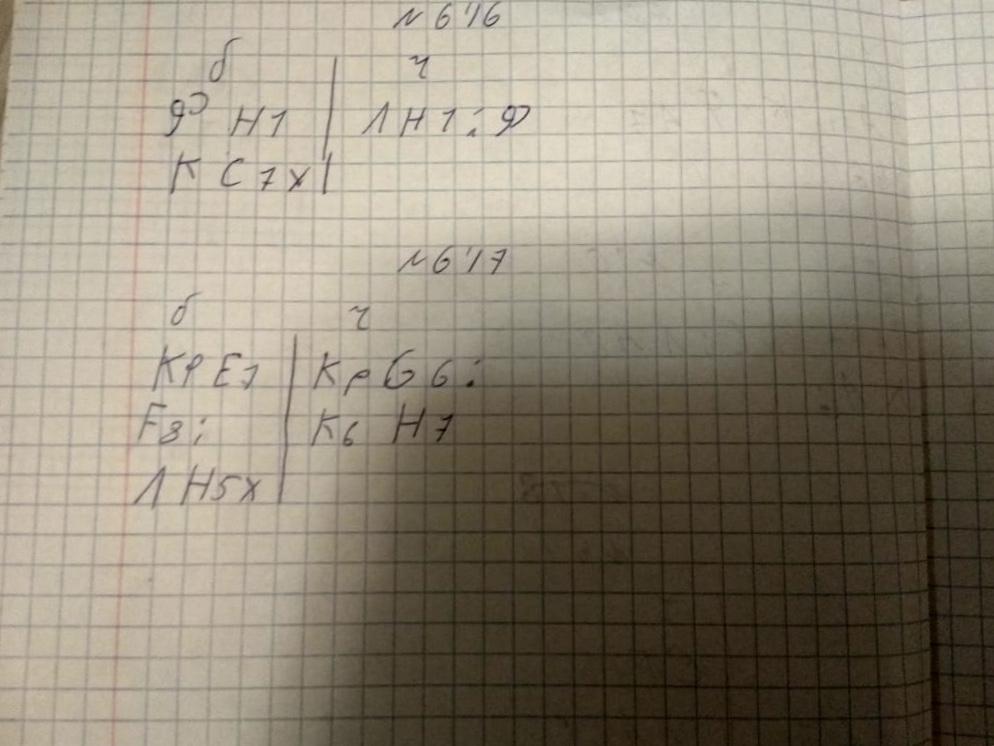 № 616
б | ч
Ф H1 | Л H1:Ф
К C7x |
№ 617
б ч
Кр E7 | Кр G6:
F8: | К6 H7
Л H5x |